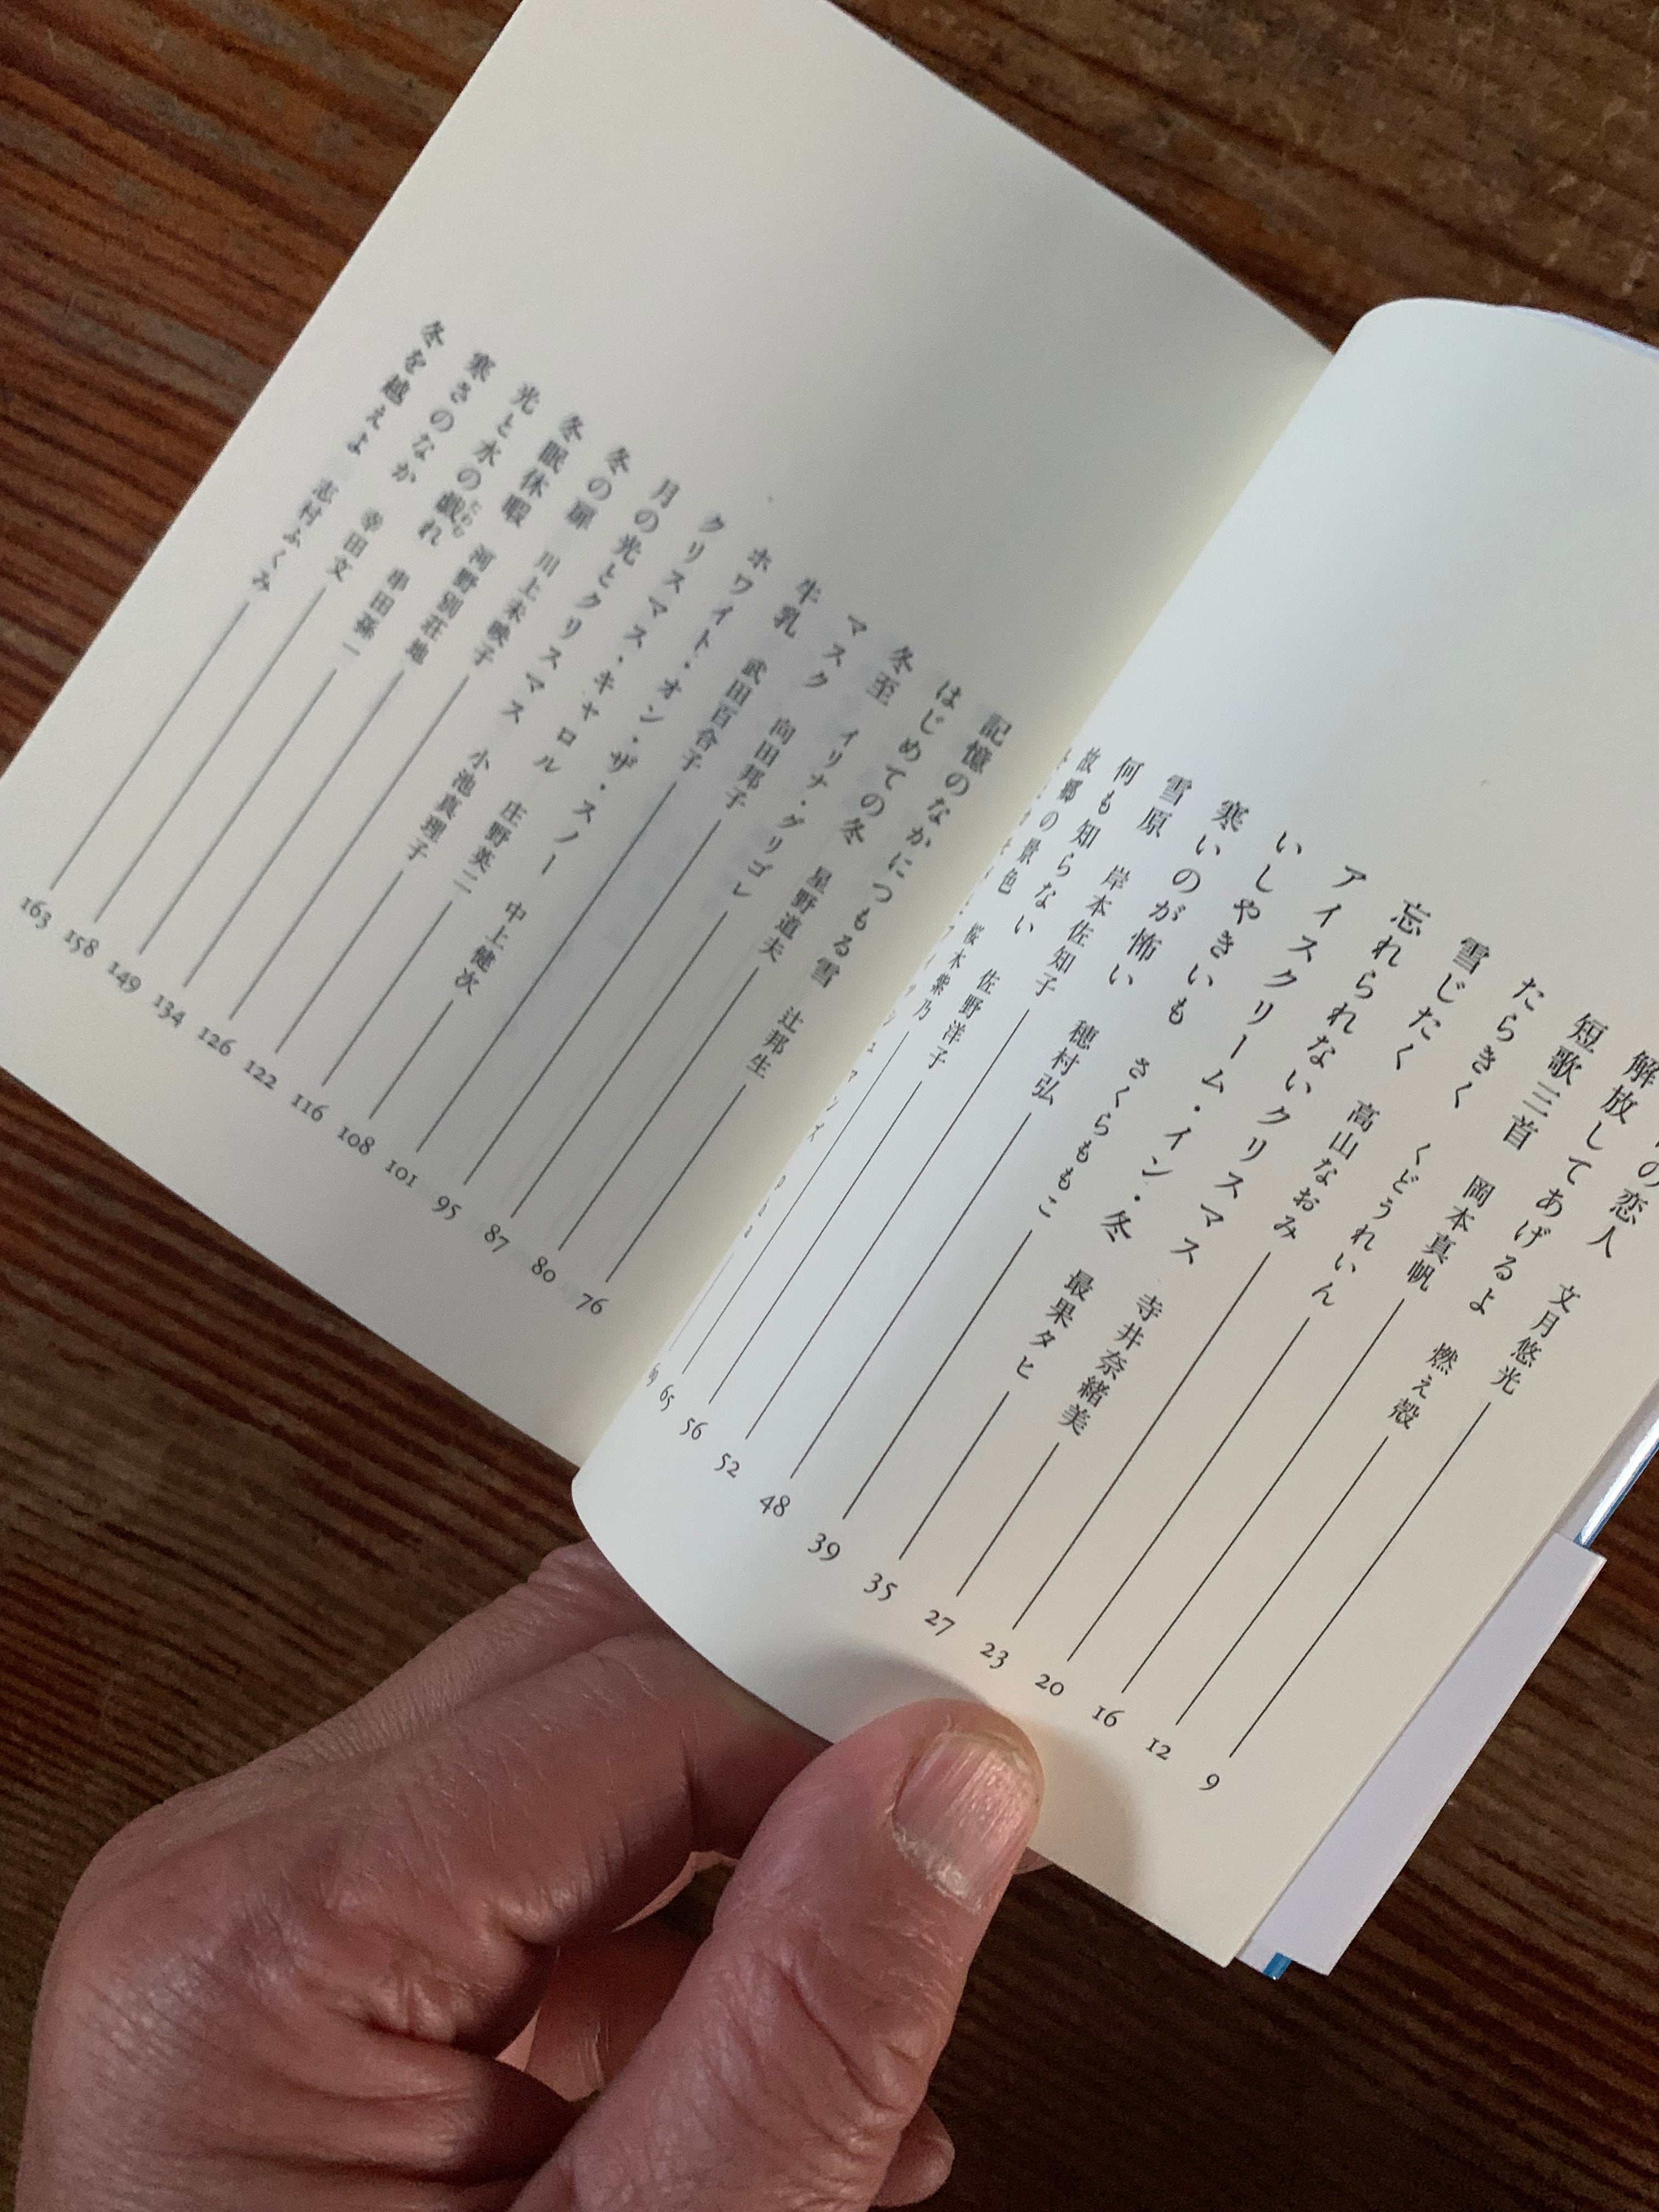 の恋人 文月悠光 9
解放してあげるよ 燃え殻 12
短歌三首 岡本真帆 16
たらきく くどうれいん 20
雪じたく 高山なおみ 23
忘れられないクリスマス 寺井奈緒美 27
アイスクリーム・イン・冬 最果タヒ 35
いしやきいも さくらももこ 39
寒いのが怖い 穂村弘 48
雪原 岸本佐知子 52
何も知らない 佐野洋子 56
故郷の景色 桜木紫乃 65
記憶のなかにつもる雪 辻邦生 76
はじめての冬 星野道夫 80
冬至 イリナ・グリゴレ 87
マスク 向田邦子 95
牛乳 武田百合子 101
ホワイト・オン・ザ・スノー 中上健次 108
クリスマス・キャロル 庄野英二 116
月の光とクリスマス 小池真理子 122
冬の扉 川上未映子 126
冬眠休暇 河野別荘地 134
光と水の戯れ 串田孫一 149
寒さのなか 幸田文 158
冬を越えよ 志村ふくみ 163